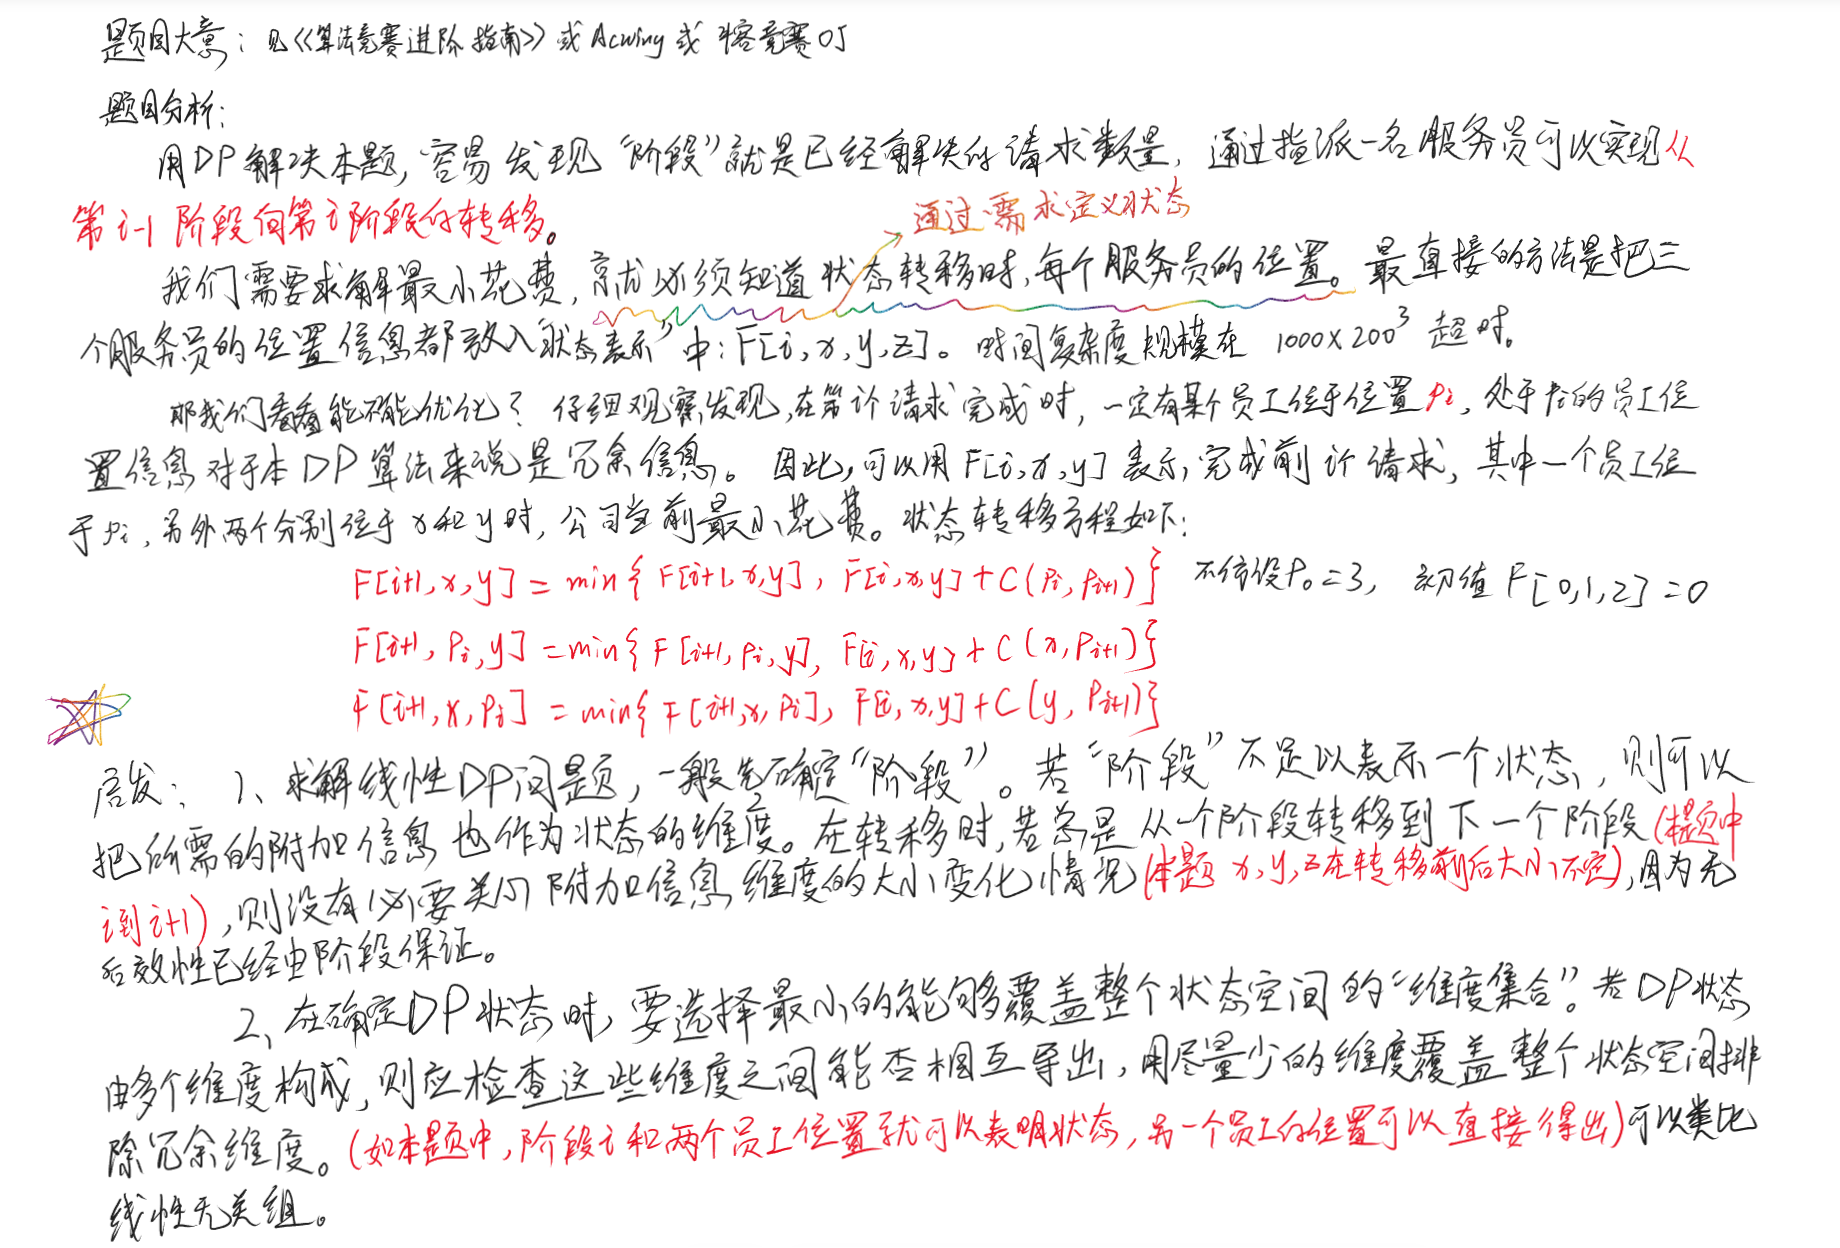 题目大意：见《算法竞赛进阶指南》或Acwing或牛客竞赛OJ
题目分析：
用DP解决本题，容易发现“阶段”就是已经解决的请求数量，通过指派一名服务员可以实现从
第i-1阶段向第i阶段的转移。
通过需求定义状态
我们需要求解最小花费，就必须知道状态转移时，每个服务员的位置。最直接的方法是把三
个服务员的位置信息都放入“状态表示”中：F[i,x,y,z]。时间复杂度规模在 1000×200³ 超时。
那我们看看能不能优化？仔细观察发现，在第i个请求完成时，一定有某个员工位于位置Pi，处于Pi的员工位
置信息对于本DP算法来说是冗余信息。因此，可以用F[i,x,y]表示，完成前i个请求，其中一个员工位
于Pi，另外两个分别位于x和y时，公司当前最小花费。状态转移方程如下：
F[i+1,x,y] = min{F[i+1,x,y], F[i,x,y]+C(Pi,Pi+1)} 不妨设P₀=3，初值F[0,1,2]=0
F[i+1,Pi,y] = min{F[i+1,Pi,y], F[i,x,y]+C(x,Pi+1)}
F[i+1,x,Pi] = min{F[i+1,x,Pi], F[i,x,y]+C(y,Pi+1)}
启发：1、求解线性DP问题，一般先确定“阶段”。若“阶段”不足以表示一个状态，则可以
把所需的附加信息也作为状态的维度。在转移时，若总是从一个阶段转移到下一个阶段(本题中
i到i+1)，则没有必要关心附加信息维度的大小变化情况(本题x,y,z在转移前后大小不定)，因为无
后效性已经由阶段保证。
2、在确定DP状态时，要选择最小的能够覆盖整个状态空间的“维度集合”。若DP状态
由多个维度构成，则应检查这些维度之间能否相互导出，用尽量少的维度覆盖整个状态空间排
除冗余维度。(如本题中，阶段i和两个员工位置就可以表明状态，另一个员工的位置可以直接得出)可以类比
线性无关组。